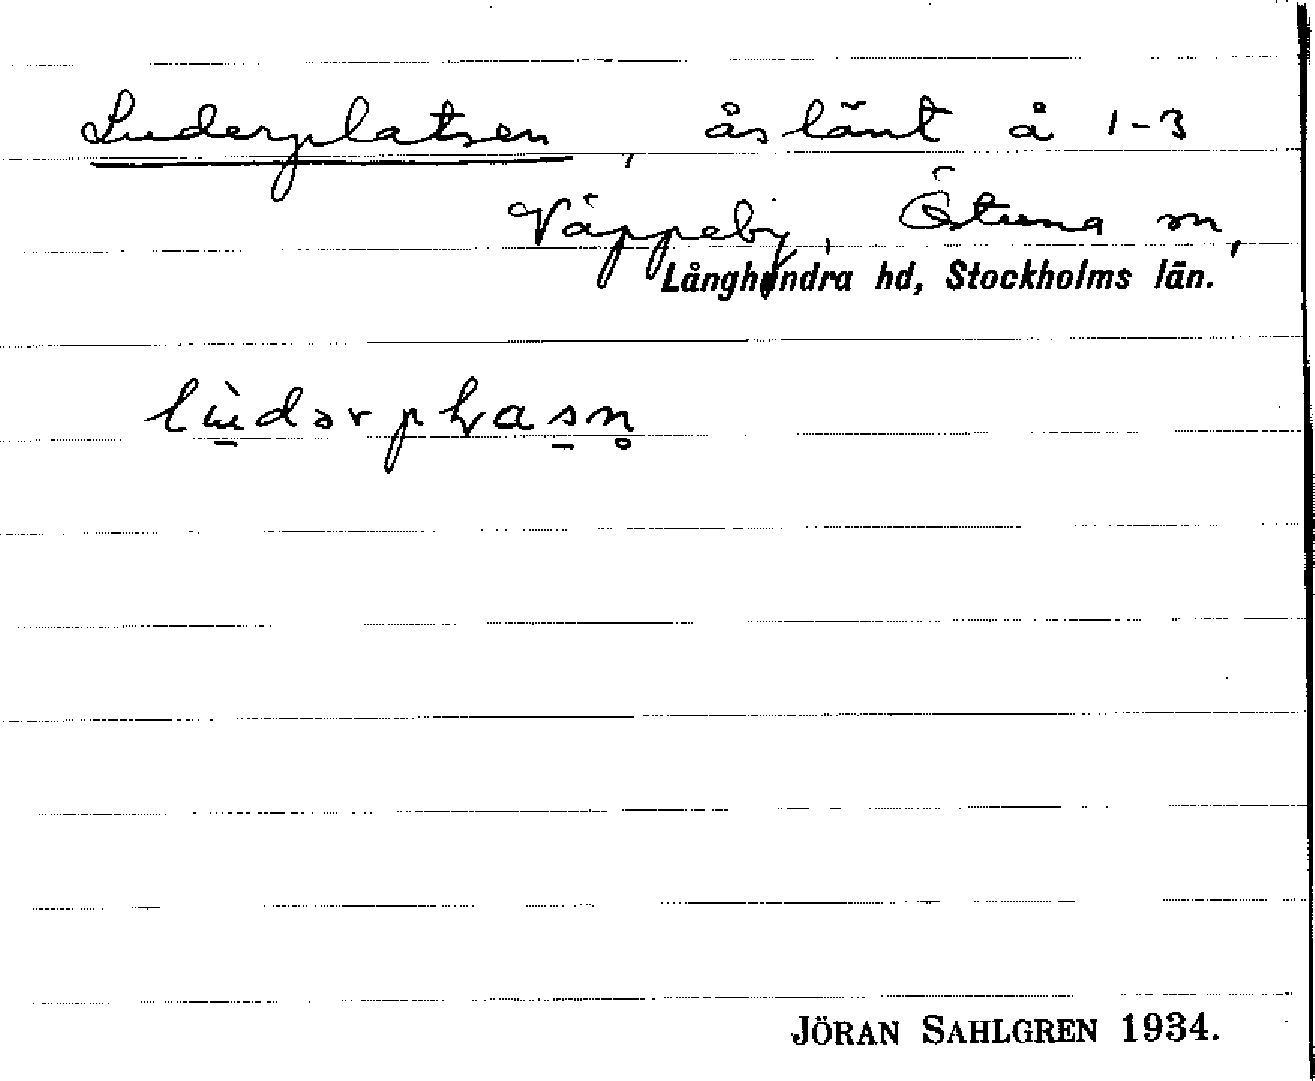 Luderplatsen, åslänt å 1-3
Väppeby, Östuna sn,
Långhundra hd, Stockholms län.
JÖRAN SAHLGREN 1934.